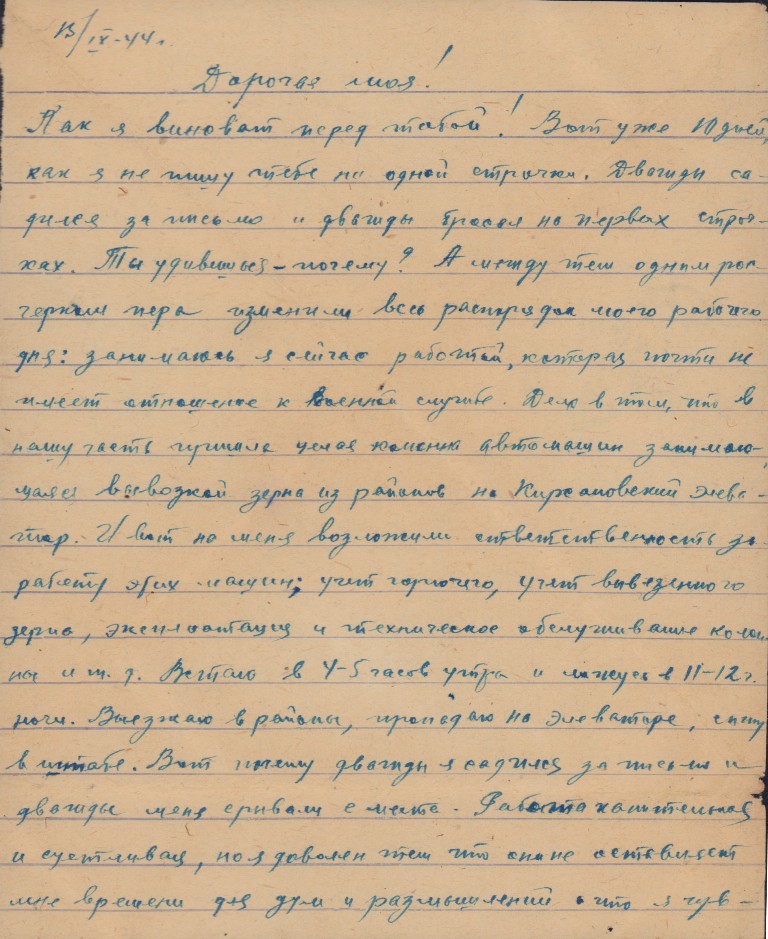 13/IX-44 г.
Дорогая моя!
Как я виноват перед тобой! Вот уже 10 дней,
как я не пишу тебе ни одной строчки. Дважды са-
дился за письмо и дважды бросал на первых строч-
ках. Ты удивишься - почему? А между тем одним рос-
черком пера изменили весь распорядок моего рабочего
дня: занимаюсь я сейчас работой, которая почти не
имеет отношение к военной службе. Дело в том, что в
нашу часть пришла целая колонна автомашин занимаю-
щаяся вывозкой зерна из районов на Кирсановский элева-
тор. И вот на меня возложили ответственность за
работу этих машин; учет горючего, учет вывезенного
зерна, эксплоатация и техническое обслуживание колон-
ны и т. д. Встаю в 4-5 часов утра и ложусь в 11-12 ч.
ночи. Выезжаю в районы, пропадаю на элеваторе, сижу
в штабе. Вот почему дважды я садился за письмо и
дважды меня срывали с места. Работа канительная
и суетливая, но я доволен тем что она не оставляет
мне времени для дум и размышлений о что я чув-